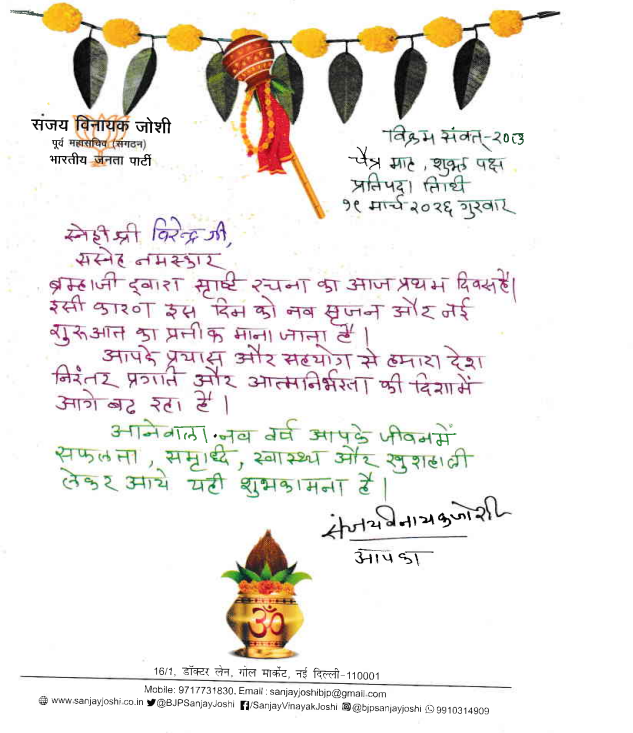 संजय विनायक जोशी
पूर्व महासचिव (संगठन)
भारतीय जनता पार्टी
विक्रम संवत्-२०८३
चैत्र माह, शुक्ल पक्ष
प्रतिपदा तिथी
१९ मार्च २०२६ गुरुवार
स्नेही श्री विरेन्द्र जी,
सस्नेह नमस्कार
ब्रम्हाजी द्वारा सृष्टि रचना का आज प्रथम दिवस है।
इसी कारण इस दिन को नव सृजन और नई
शुरुआत का प्रतीक माना जाता है।
आपके प्रयास और सहयोग से हमारा देश
निरंतर प्रगति और आत्मनिर्भरता की दिशा में
आगे बढ़ रहा है।
आनेवाला नव वर्ष आपके जीवन में
सफलता, समृध्दि, स्वास्थ्य और खुशहाली
लेकर आये यही शुभकामना है।
संजय विनायक जोशी
आपका
ॐ
16/1, डॉक्टर लेन, गोल मार्केट, नई दिल्ली-110001
Mobile: 9717731830. Email : sanjayjoshibjp@gmail.com
www.sanjayjoshi.co.in @BJPSanjayJoshi /SanjayVinayakJoshi @bjpsanjayjoshi 9910314909